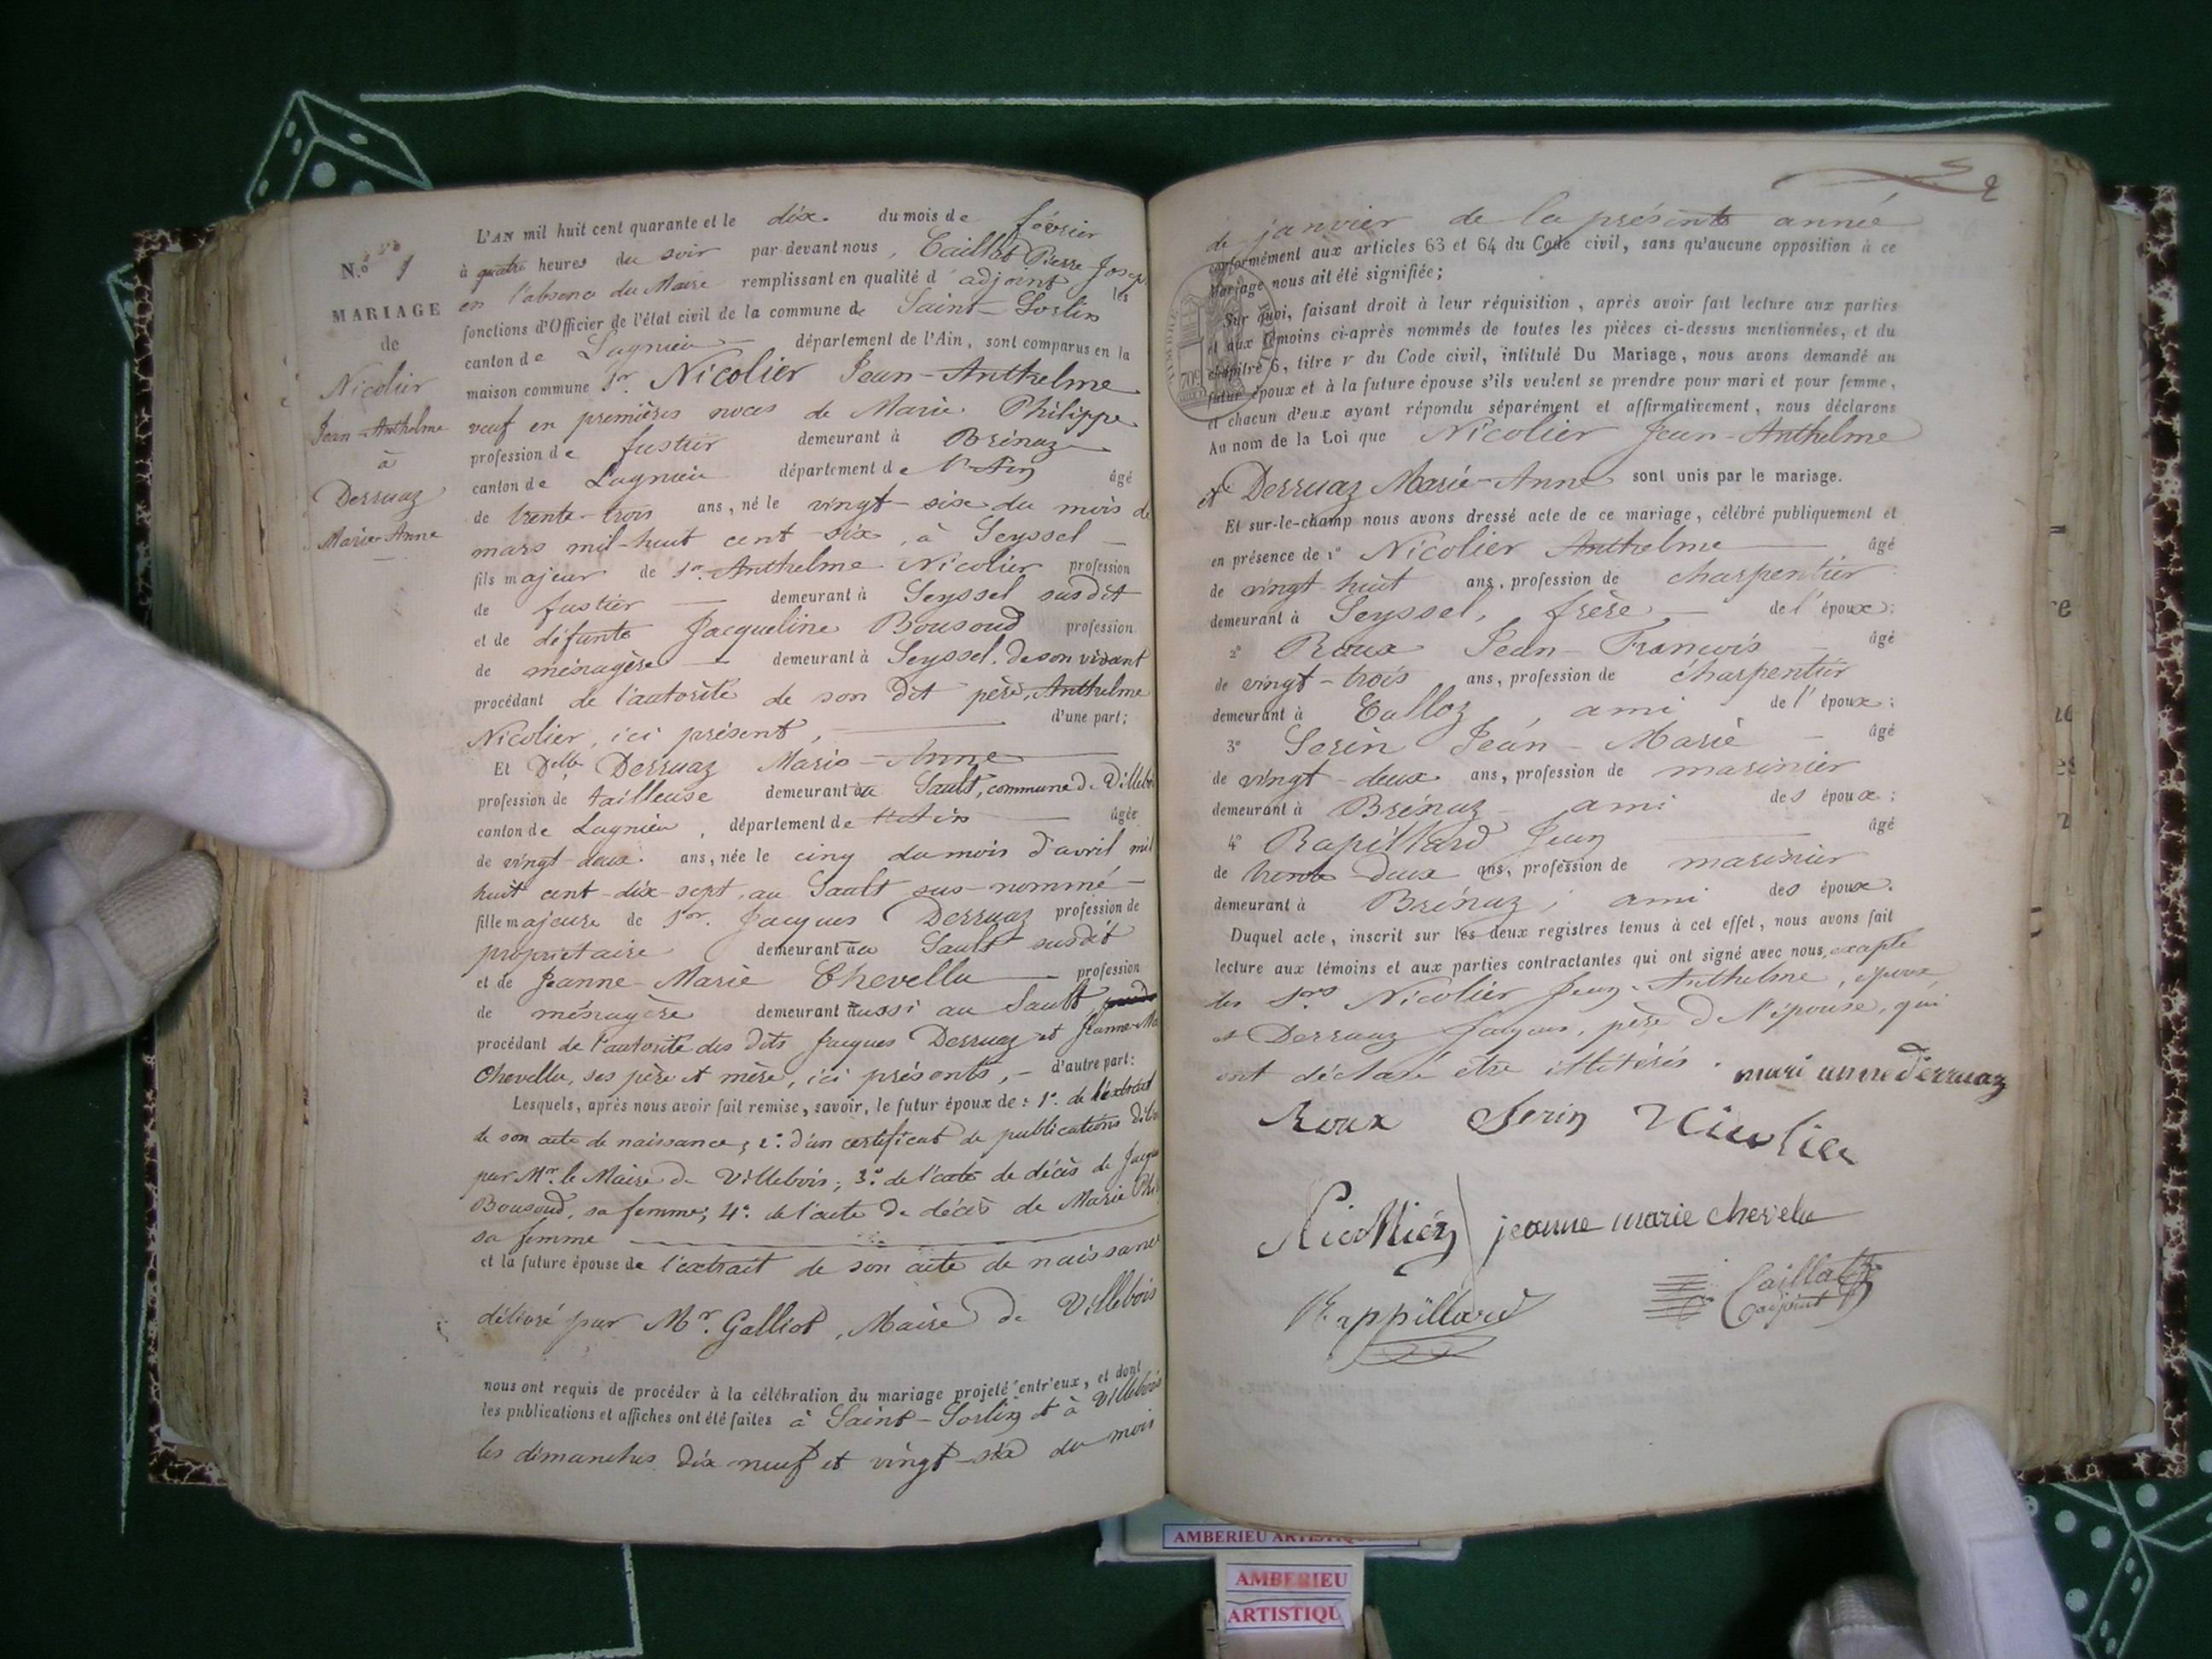 N.º 1
MARIAGE
de
Nicolier
Jean-Anthelme
à
Derruaz
Marie-Anne
L'AN mil huit cent quarante et le dix. du mois de février
à quatre heures du soir par-devant nous, Caillat Pierre Joseph
en l'absence du Maire remplissant en qualité d'adjoint les
fonctions d'Officier de l'état civil de la commune de Saint-Sorlin
canton de Lagnieu département de l'Ain, sont comparus en la
maison commune Sr. Nicolier Jean-Anthelme
veuf en premières noces de Marie Philippe
profession de fustier demeurant à Brénaz
canton de Lagnieu département de l'Ain âgé
de trente-trois ans, né le vingt-six du mois de
mars mil-huit cent-six, à Seyssel
fils majeur de Sr. Anthelme Nicolier profession
de fustier demeurant à Seyssel susdit
et de défunte Jacqueline Bousoud profession
de ménagère demeurant à Seyssel. de son vivant
procédant de l'autorité de son dit père, Anthelme
Nicolier, ici présent, d'une part;
Et Delle Derruaz Marie-Anne
profession de tailleuse demeurant au Sault, commune de Villebois
canton de Lagnieu, département de l'Ain âgée
de vingt-deux. ans, née le cinq du mois d'avril mil
huit cent-dix-sept, au Sault sus-nommé
fille majeure de Sr. Jacques Derruaz profession de
propriétaire demeurant au Sault susdit
et de Jeanne-Marie Chevellu profession
de ménagère demeurant aussi au Sault,
procédant de l'autorité des dits Jacques Derruaz et Jeanne-Ma
Chevellu, ses père et mère, ici présents, - d'autre part:
Lesquels, après nous avoir fait remise, savoir, le futur époux de: 1º. de l'extrait
de son acte de naissance; 2º. d'un certificat de publications déliv
par Mr. le Maire de Villebois; 3º. de l'acte de décès de Jacque
Bousoud, sa femme; 4º. de l'acte de décès de Marie Phi
sa femme
et la future épouse de l'extrait de son acte de naissance
délivré par Mr. Galliot, Maire de Villebois
nous ont requis de procéder à la célébration du mariage projeté entr'eux, et dont
les publications et affiches ont été faites à Saint-Sorlin et à Villebois
les dimanches dix neuf et vingt-six du mois
2
de janvier de la présente année
conformément aux articles 63 et 64 du Code civil, sans qu'aucune opposition à ce
Mariage nous ait été signifiée;
Sur quoi, faisant droit à leur réquisition, après avoir fait lecture aux parties
et aux témoins ci-après nommés de toutes les pièces ci-dessus mentionnées, et du
chapitre 6, titre V du Code civil, intitulé Du Mariage, nous avons demandé au
futur époux et à la future épouse s'ils veulent se prendre pour mari et pour femme,
et chacun d'eux ayant répondu séparément et affirmativement, nous déclarons
Au nom de la Loi que Nicolier Jean-Anthelme
et Derruaz Marie-Anne sont unis par le mariage.
Et sur-le-champ nous avons dressé acte de ce mariage, célébré publiquement et
en présence de 1º Nicolier Anthelme âgé
de vingt-huit ans, profession de charpentier
demeurant à Seyssel, frère de l'époux;
2º Roux Jean-François âgé
de vingt-trois ans, profession de charpentier
demeurant à Culloz, ami de l'époux;
3º Serin Jean-Marie âgé
de vingt-deux ans, profession de marinier
demeurant à Brénaz, ami des époux;
4º Rapillard Jean âgé
de trente-deux ans, profession de marinier
demeurant à Brénaz, ami des époux.
Duquel acte, inscrit sur les deux registres tenus à cet effet, nous avons fait
lecture aux témoins et aux parties contractantes qui ont signé avec nous, excepté
les Srs Nicolier Jean-Anthelme, époux,
et Derruaz Jacques, père de l'épouse, qui
ont déclaré être illitérés. mari anne derruaz
Roux Serin Nicolier
Nicollier jeanne marie chevelu
Rappillard Caillat
adjoint
AMBERIEU ARTISTIQUE
AMBERIEU
ARTISTIQU